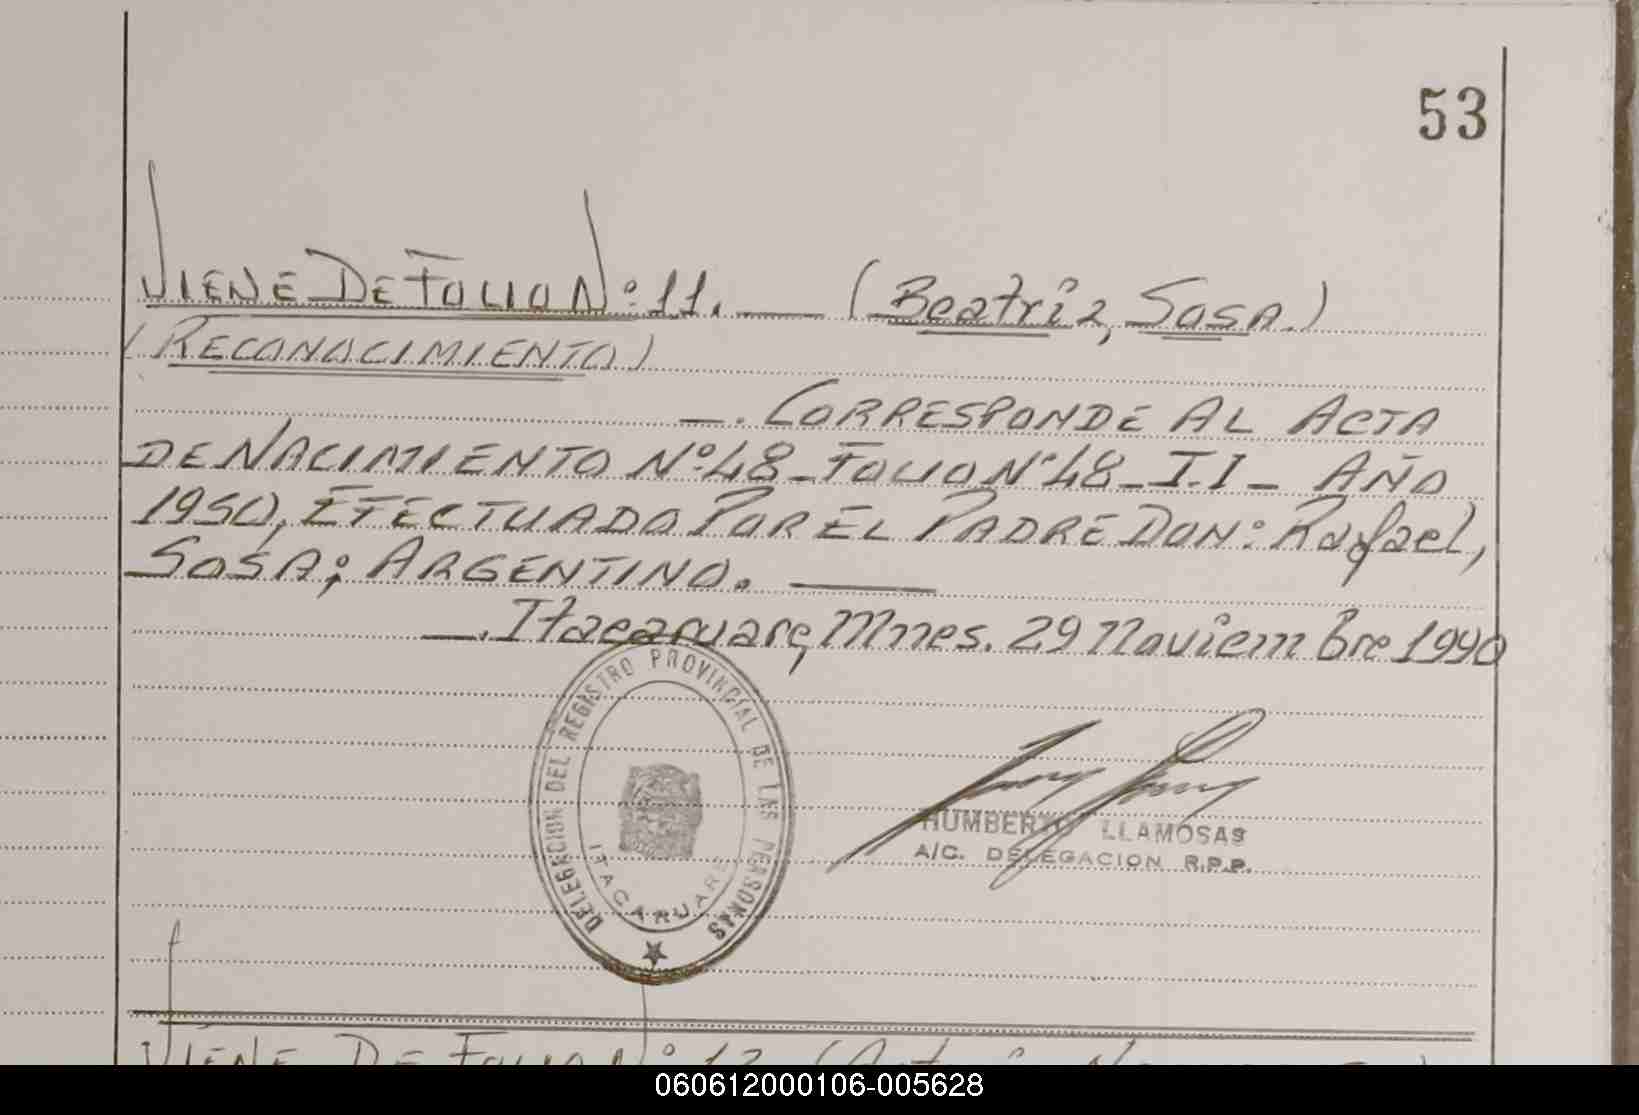 53
VIENE DE FOLIO Nº 11. — (Beatriz, Sosa.)
(RECONOCIMIENTO)
—. CORRESPONDE AL ACTA
DE NACIMIENTO Nº 48 - FOLIO Nº 48 - T.I - AÑO
1950, EFECTUADO POR EL PADRE DON: Rafael,
SOSA; ARGENTINO. —
—. Itacaruare, Mnes. 29 Noviembre 1990
DELEGACION DEL REGISTRO PROVINCIAL DE LAS PERSONAS
ITACARUARE
HUMBERTO LLAMOSAS
A/C. DELEGACION R.P.P.
VIENE DE FOLIO Nº 12
060612000106-005628